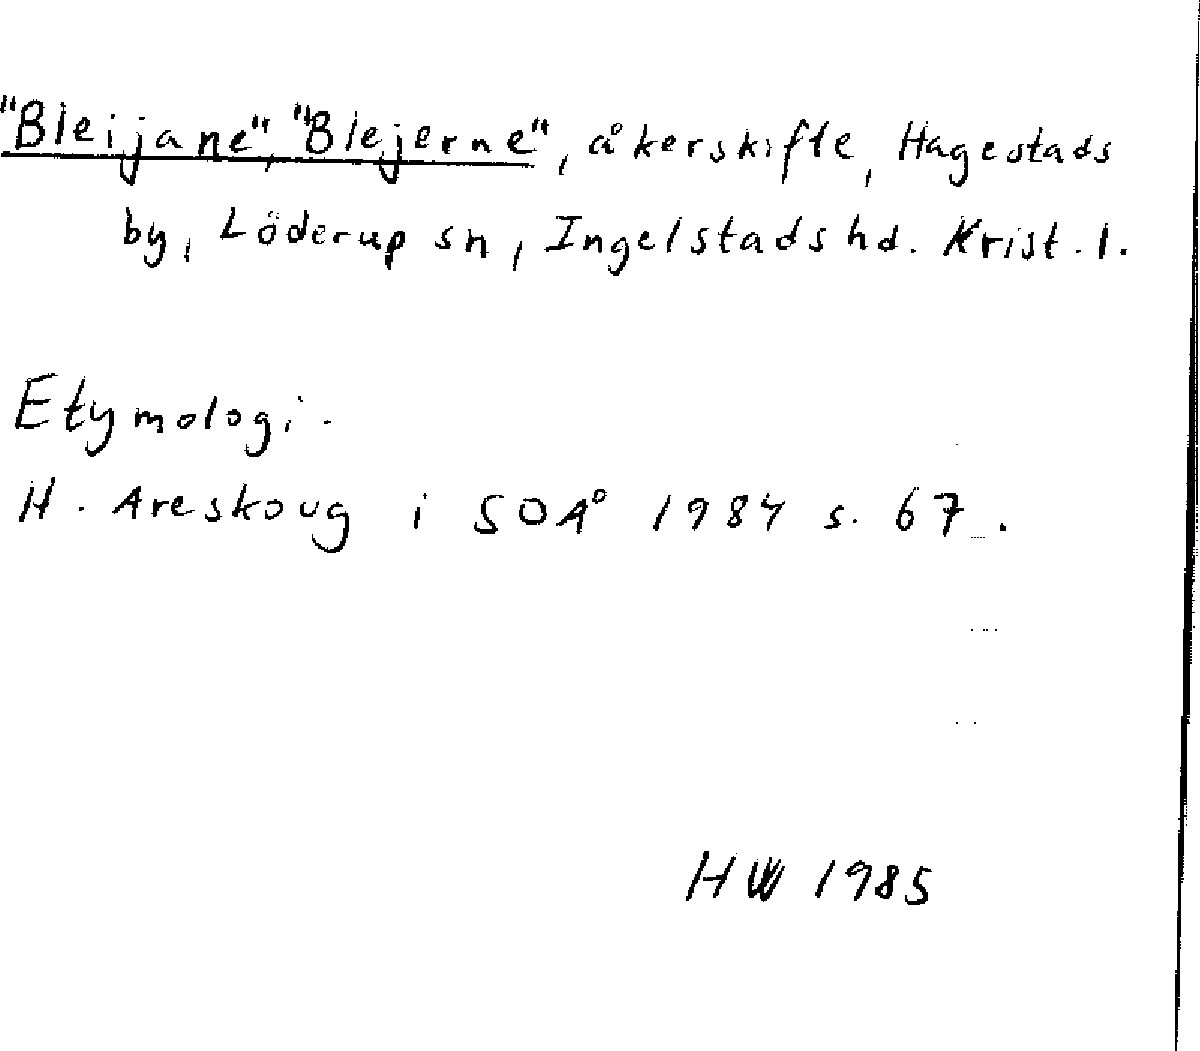 "Bleijane", "Blejerne", åkerskifte, Hagestads
by, Löderup sn, Ingelstads hd. Krist. l.
Etymologi.
H. Areskoug i SOÅ 1984 s. 67.
HW 1985